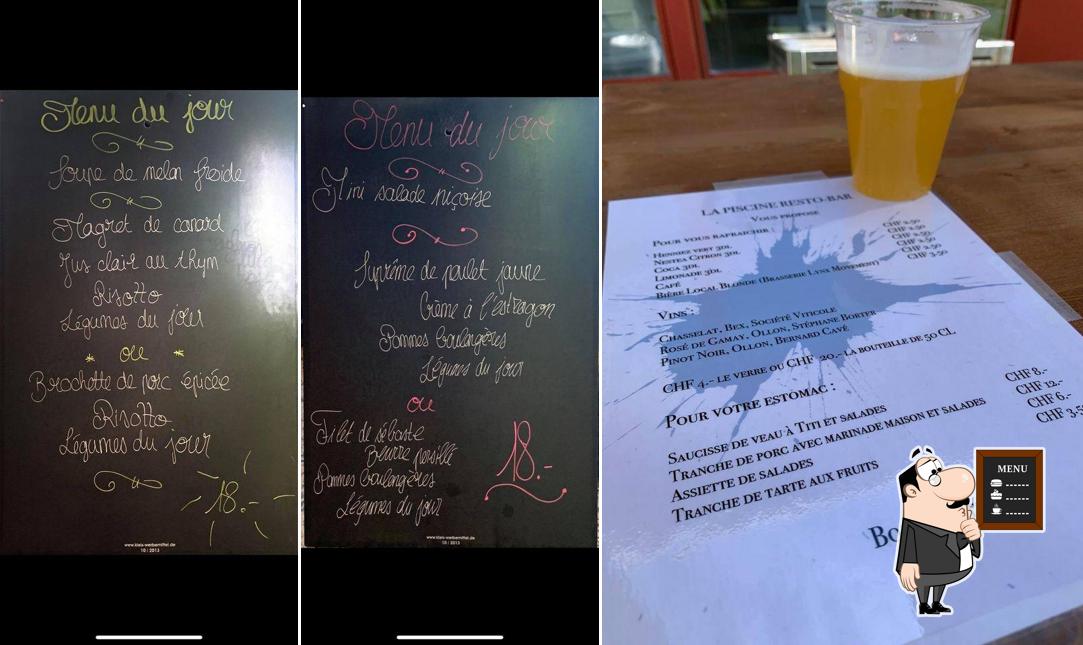 Menu du jour
Soupe de melon froide
Magret de canard
Jus clair au thym
Risotto
Légumes du jour
* ou *
Brochette de porc épicée
Risotto
Légumes du jour
18.-
www.kleis-werbemittel.de
10 / 2013
Menu du jour
Mini salade niçoise
Suprême de poulet jaune
Crème à l'estragon
Pommes boulangères
Légumes du jour
ou
Filet de sébaste
Beurre persillé
Pommes boulangères
Légumes du jour
18.-
www.kleis-werbemittel.de
10 / 2013
La Piscine Resto-Bar
Vous propose
Pour vous rafraichir :
Henniez vert 3dl CHF 2.50
Nestea Citron 3dl CHF 2.50
Coca 3dl CHF 2.50
Limonade 3dl CHF 2.50
Café CHF 2.50
Bière Local Blonde (Brasserie Lynx Movement) CHF 3.50
Vins :
Chasselat, Bex, Société Viticole
Rosé de Gamay, Ollon, Stéphane Borter
Pinot Noir, Ollon, Bernard Cavé
CHF 4.- le verre ou CHF 20.- la bouteille de 50 CL
Pour votre estomac :
Saucisse de veau à Titi et salades CHF 8.-
Tranche de porc avec marinade maison et salades CHF 12.-
Assiette de salades CHF 6.-
Tranche de tarte aux fruits CHF 3.5
MENU